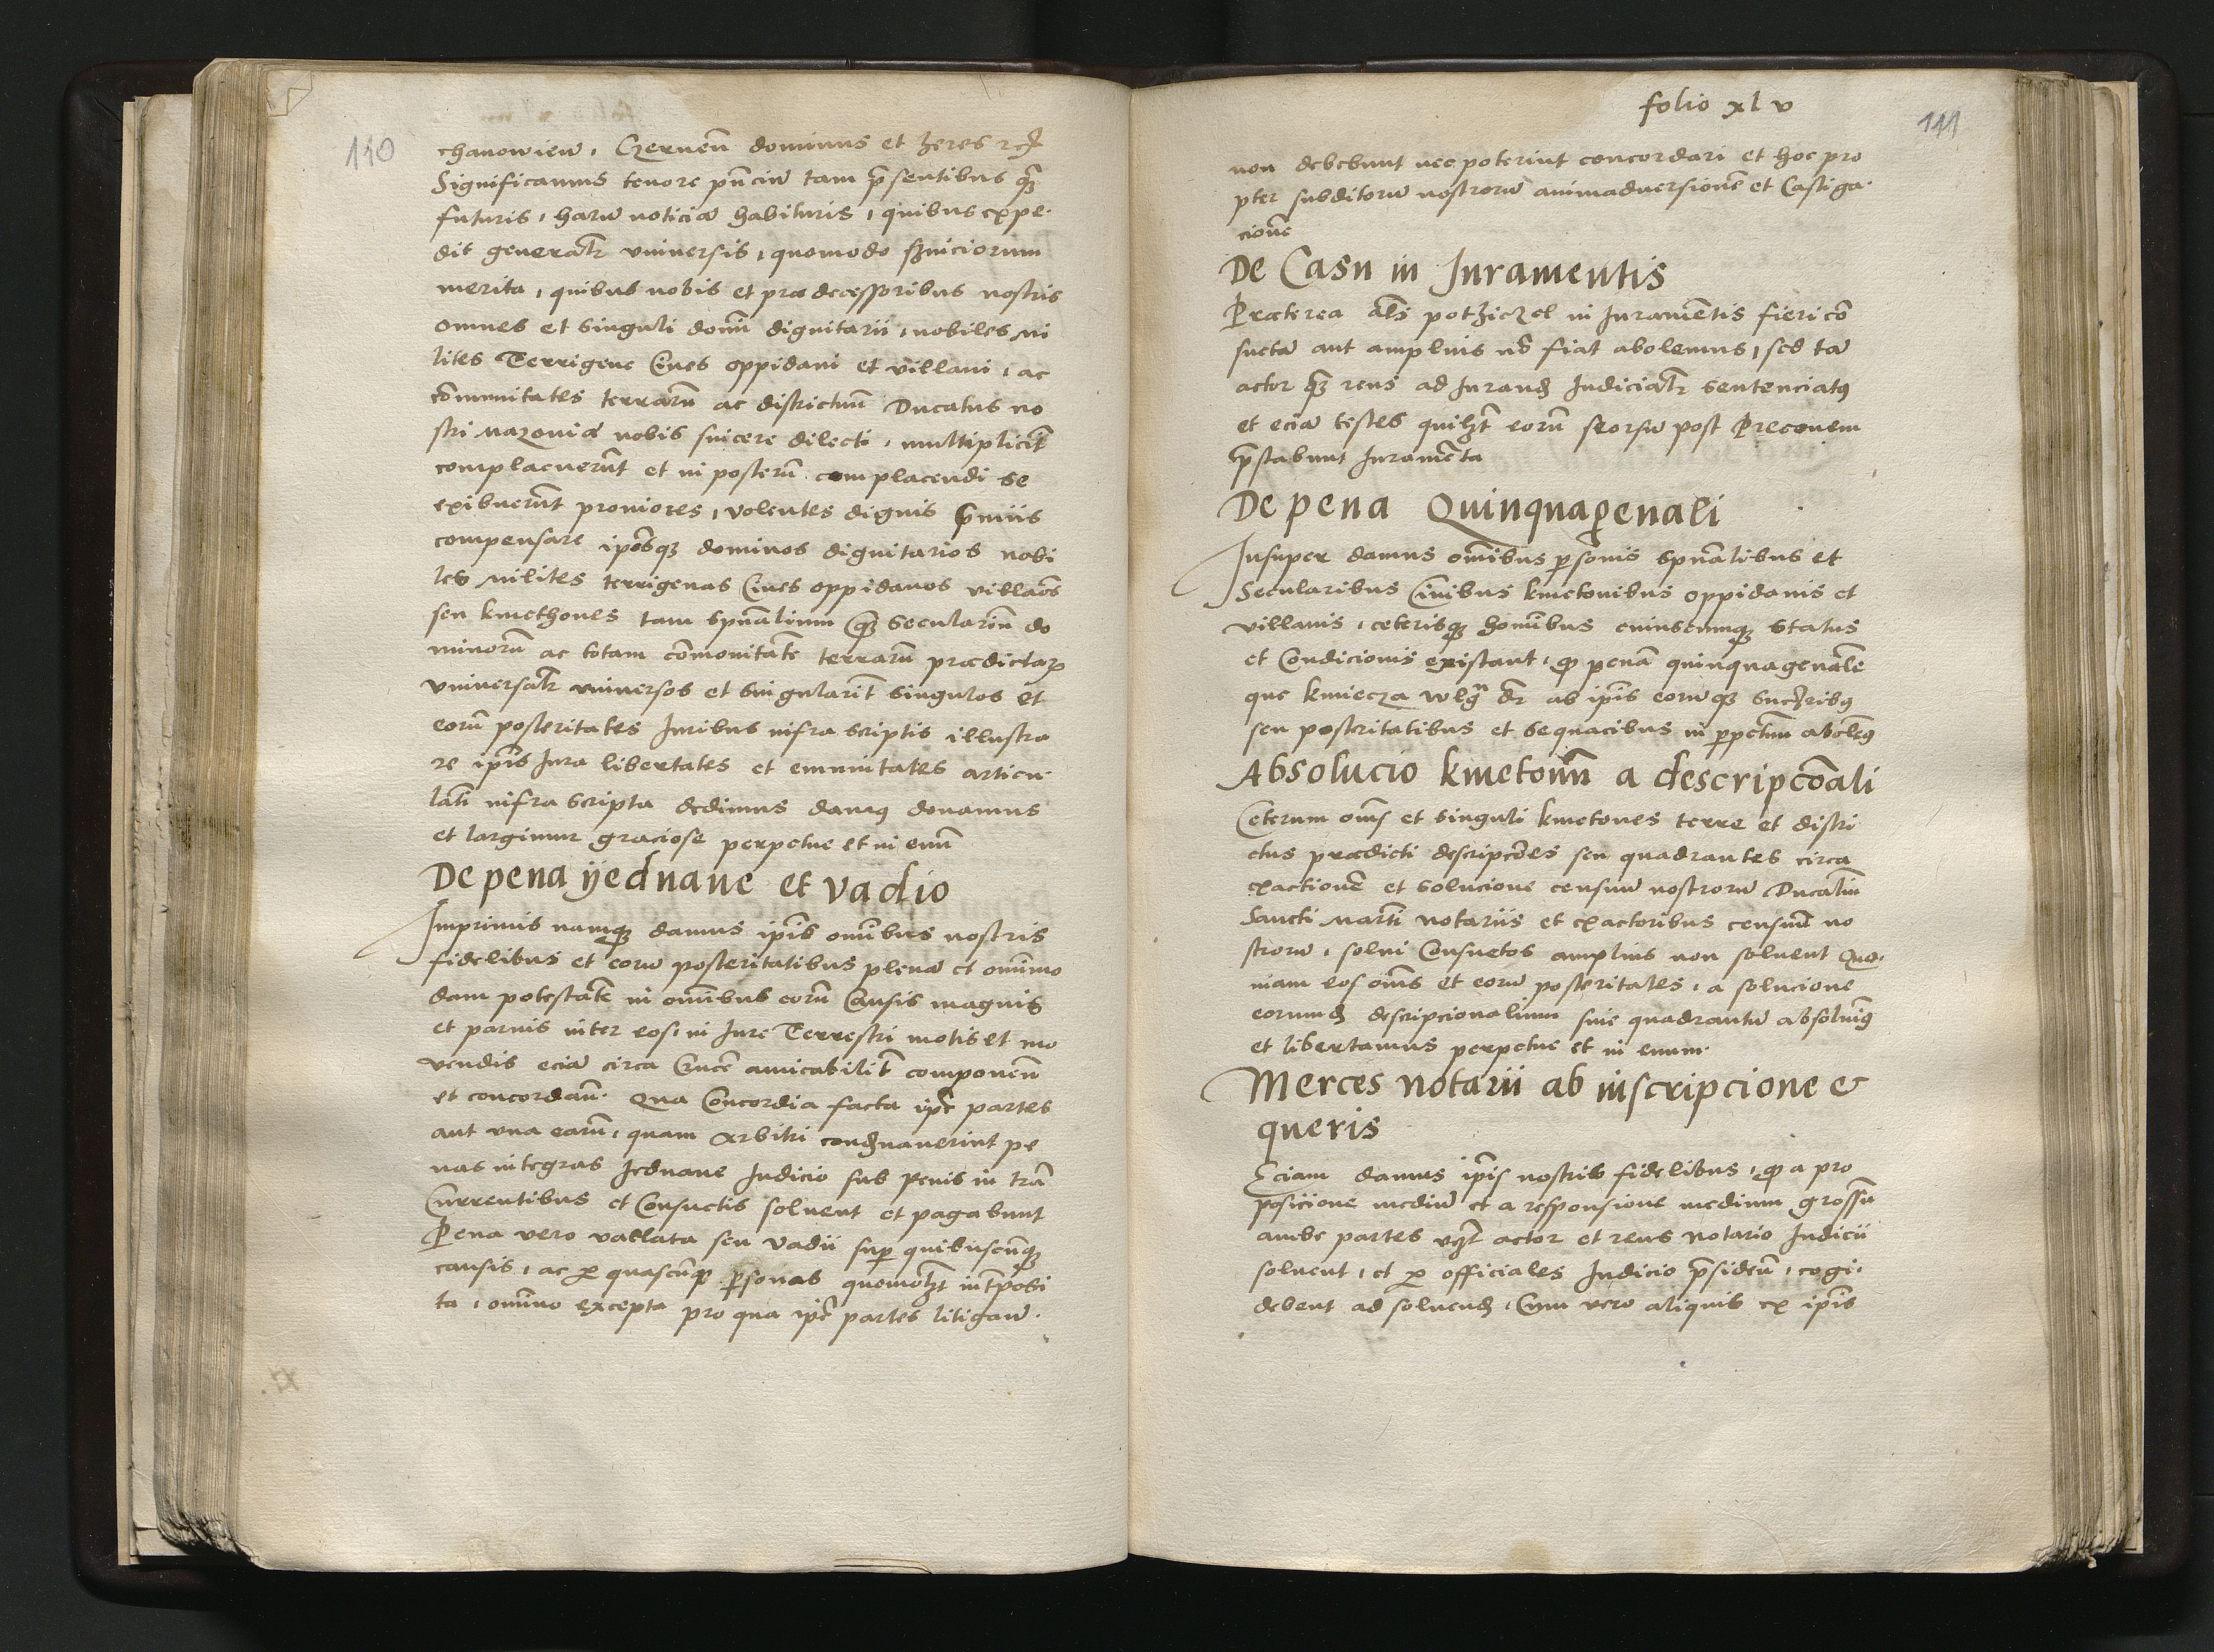 110
chanowien, Czernen̄ dominus et heres rc̄
Significamus tenore pn̄ciū tam p̄sentibus q̄z
futuris, harū noticiā habituris, quibus expe-
dit generalr̄ vniversis, quomodo s̄viciorum
merita, quibus nobis et prædecessoribus nostris
omnes et singuli domī dignitarii, nobiles mi
lites Terrigene Cives oppidani et villani, ac
cōmunitates terrarū ac districtuū Ducatus no
stri Mazoviæ nobis sincere dilecti, multiplicit̄
complacuerūt et in posterū complacendi se
exibuerūt proniores, volentes dignis p̄miis
compensare ip̄osq̄z dominos dignitarios nobi
les Milites terrigenas Cives oppidanos villāos
seu kmethones tam spūalium q̄z seculariū do
minorū ac totam cōmonitatē terrarū prædictaꝝ
vniversalr̄ vniversos et singularit̄ singulos et
eorū posteritates Iuribus infra scriptis illustra
re ip̄is Iura libertates et emunitates articu-
latī infra scripta dedimus damꝰ donamus
et largimur graciose perpetue et in evū
De pena ÿednane et vadio
Imprimis namq̄z damus ip̄is omībus nostris
fidelibus et eorū posteritatibus plenā et omīmo
dam potestatē in omībus eorū Causis magnis
et parvis inter eos, in Iure Terrestri motis et mo
vendis eciā circa Crucē amicabilit̄ componen̄
et concordan̄. Qua Concordia facta ip̄e partes
aut vna earū, quam Arbitri condēnaverint pe
nas integras Jednane Iudicio sub penis in t̄rā
Currentibus et Consuetis solvent et pagabunt
Pena vero vallata seu vadii sup̱ quibuscūq̄z
causis, ac ꝑ quascūq̄z ꝑsonas quomōlz̄t int̄posi
ta, omīno excepta pro qua ip̄e partes litigan̄.
folio xlv
111
non debebunt nec poterint concordari et hoc pro
pter subditorū nostrorū animadversionē et Castiga-
cionē
De Casu in Iuramentis
Præterea al̄s pothiczel in Iuramētis fieri cō
suetā aut amplius nō fiat abolemus, sed tā
actor q̄z reus ad Iurand̄ Iudicialr̄ sentenciatꝰ
et eciā testes quilz̄t eorū seorsū post Preconem
p̄stabunt Iuramēta
De pena Quinquagenali
Insuper damus omībus ꝑsonis spūalibus et
Secularibus Civibus kmetonibus oppidanis et
villanis, ceterisq̄z homībus cuiuscumq̄z status
et Condicionis existant, q̄ penā quinquagenalē
que kmiecza wlgr̄ dr̄ ab ip̄is eorūq̄z succ̄ribꝰ
seu posteritatibus et sequacibus in ꝑpetuū abolemꝰ
Absolucio kmetonū a descripcōali
Ceterum om̄s et singuli kmetones terre et distri
ctus prædicti descripcōes seu quadrantes circa
exactionē et solucione censuum nostrorū Ducaliū
Sancti Martī notariis et exactoribus censuū no
strorū, solvi Consuetos amplius non solvent Quo-
niam eos om̄s et eorū posteritates, a solucione
eorumd̄ descripcionalium sive quadrantū absolvimꝰ
et libertamus perpetue et in evum.
Merces notarii ab inscripcione &
queris
Eciam damus ip̄is nostris fidelibus, q̄ a pro
posicione mediū et a responsione medium grossū
ambe partes vz̄t actor et reus notario Iudicii
solvent, et ꝑ officiales Iudicio p̄siden̄, cogi,
debent ad solvend̄, Cum vero aliquis ex ip̄is